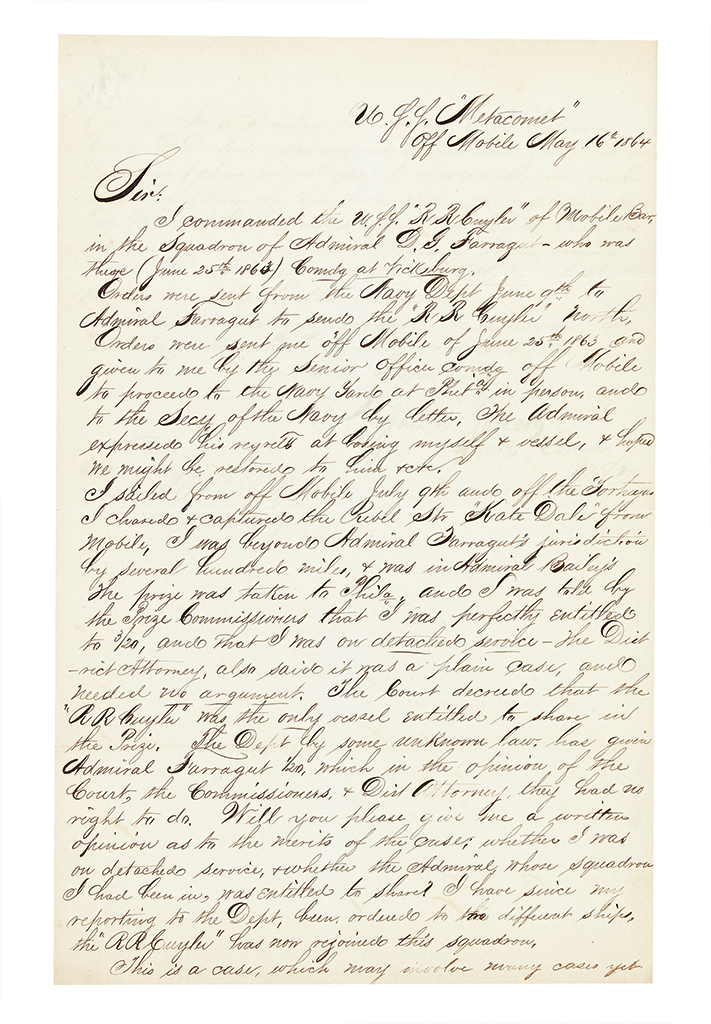 U.S.S. "Metacomet"
Off Mobile May 16th 1864
Sir.
I commanded the U.S.S. "R R Cuyler" of Mobile Bar,
in the Squadron of Admiral D. G. Farragut - who was
then (June 25th 1863) Comdg at Vicksburg.
Orders were sent from the Navy Dept June 9th to
Admiral Farragut to send the "R R Cuyler" North,
Orders were sent me off Mobile of June 25th 1863 and
given to me by the Senior Officer comdg off Mobile
to proceed to the Navy Yard at Phila in person, and
to the Secy of the Navy by letter, The Admiral
expressed his regrets at losing myself & vessel, & hoped
we might be restored to him &c&c.
I sailed from off Mobile July 9th and off the Tortugas
I chased & captured the Rebel Str "Kate Dale" from
Mobile, I was beyond Admiral Farragut's jurisdiction
by several hundred miles, & was in Admiral Bailey's
The prize was taken to Phila, and I was told by
the Prize Commissioners that "I was perfectly entitled
to 3/20, and that I was on detached service - The Dist
-rict Attorney, also said it was a plain case, and
needed no argument. The Court decreed that the
"R R Cuyler" was the only vessel entitled to share in
the Prize. The Dept by some unknown law, has given
Admiral Farragut 1/20, which in the opinion of the
Court, the Commissioners, & Dist Attorney, they had no
right to do. Will you please give me a written
opinion as to the merits of the case; whether I was
on detached service, & whether the Admiral, whose squadron
I had been in, was entitled to share? I have since my
reporting to the Dept, been, ordered to different ships,
the "R R Cuyler" has now rejoined this squadron,
This is a case, which may involve many cases yet